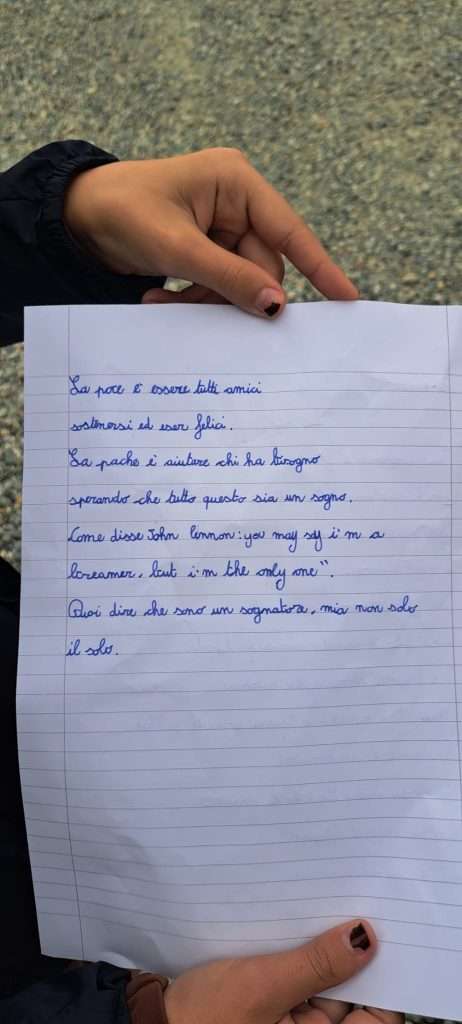 La pace è essere tutti amici
sostenersi ed eser felici.
La pache è aiutare chi ha bisogno
sperando che tutto questo sia un sogno.
Come disse John lennon: you may sy i'm a
screamer, but i'm the only one".
Quoi dire che sono un sognatore, mia non solo
il solo.